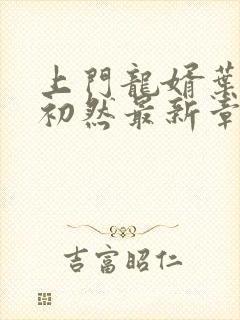 上門龍婿葉
初然最新章
吉富昭仁